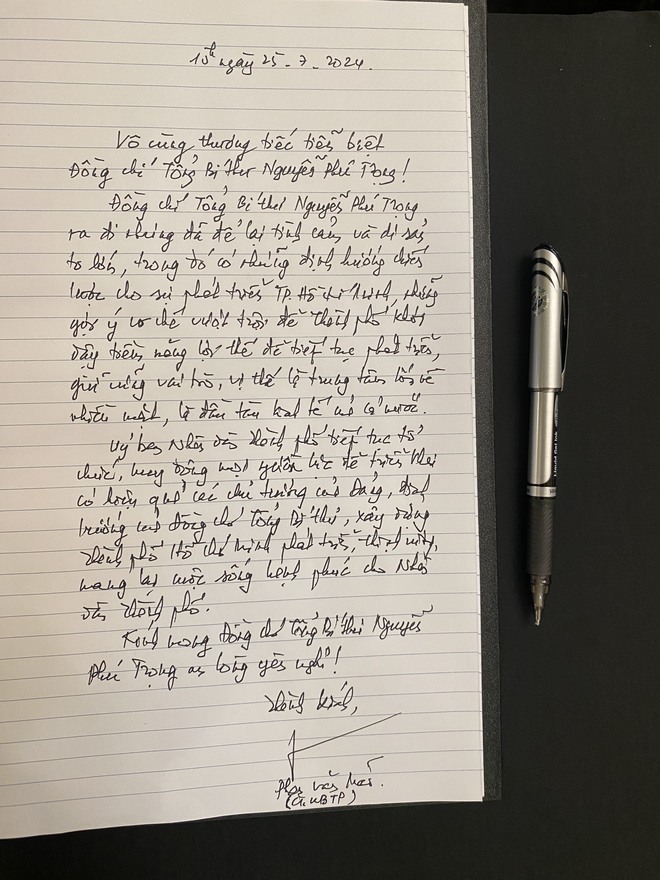 10h ngày 25-7-2024.
Vô cùng thương tiếc tiễn biệt
Đồng chí Tổng Bí thư Nguyễn Phú Trọng!
Đồng chí Tổng Bí thư Nguyễn Phú Trọng
ra đi nhưng đã để lại tình cảm và di sản
to lớn, trong đó có những định hướng chiến
lược cho sự phát triển TP. Hồ Chí Minh, những
gợi ý cơ chế vượt trội để thành phố khơi
dậy tiềm năng lợi thế để tiếp tục phát triển,
giữ vững vai trò, vị thế là trung tâm lớn về
nhiều mặt, là đầu tàu kinh tế của cả nước.
Uỷ ban Nhân dân thành phố tiếp tục tổ
chức, huy động mọi nguồn lực để triển khai
có hiệu quả các chủ trương của Đảng, định
hướng của đồng chí Tổng Bí thư, xây dựng
thành phố Hồ Chí Minh phát triển, thịnh vượng,
mang lại cuộc sống hạnh phúc cho Nhân
dân thành phố.
Kính mong Đồng chí Tổng Bí thư Nguyễn
Phú Trọng an lòng yên nghỉ!
Thành kính,
Phan Văn Mãi.
(Ct. UBTP)
Liquid Gel Ink